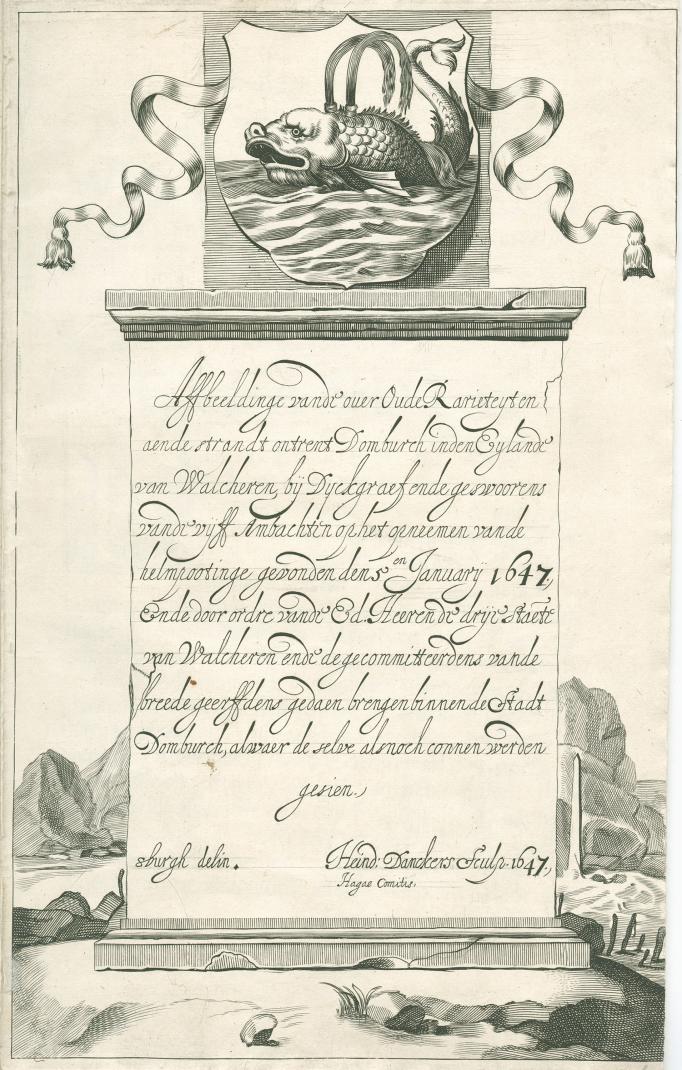 Affbeeldinge vande over Oude Rarieteyten
aende strandt ontrent Domburch inden Eylande
van Walcheren, bij Dyckgraef ende geswoorens
vande vijff Ambachtin op het opneemen vande
helmpootinge gevonden den 5en January 1647,
Ende door ordre vande Ed. Heeren de drije Staete
van Walcheren ende de gecommitteerdens vande
breede geerffdens gedaen brengen binnen de Stadt
Domburch, alwaer de selve alsnoch connen werden
gesien.
sburgh delin.
Heind: Danckers Sculp. 1647,
Hagae Comitis.